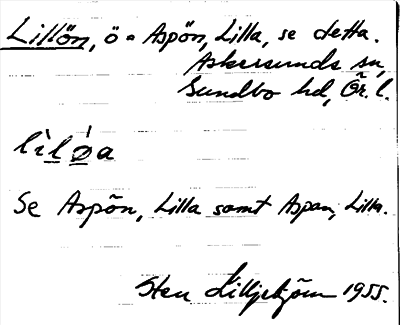 Lillön, ö = Aspön, Lilla, se detta.
Askersunds sn,
Sundbo hd, Ör. l.
lìlǿa
Se Aspön, Lilla samt Aspan, Lilla.
Sten Lilljebjörn 1955.